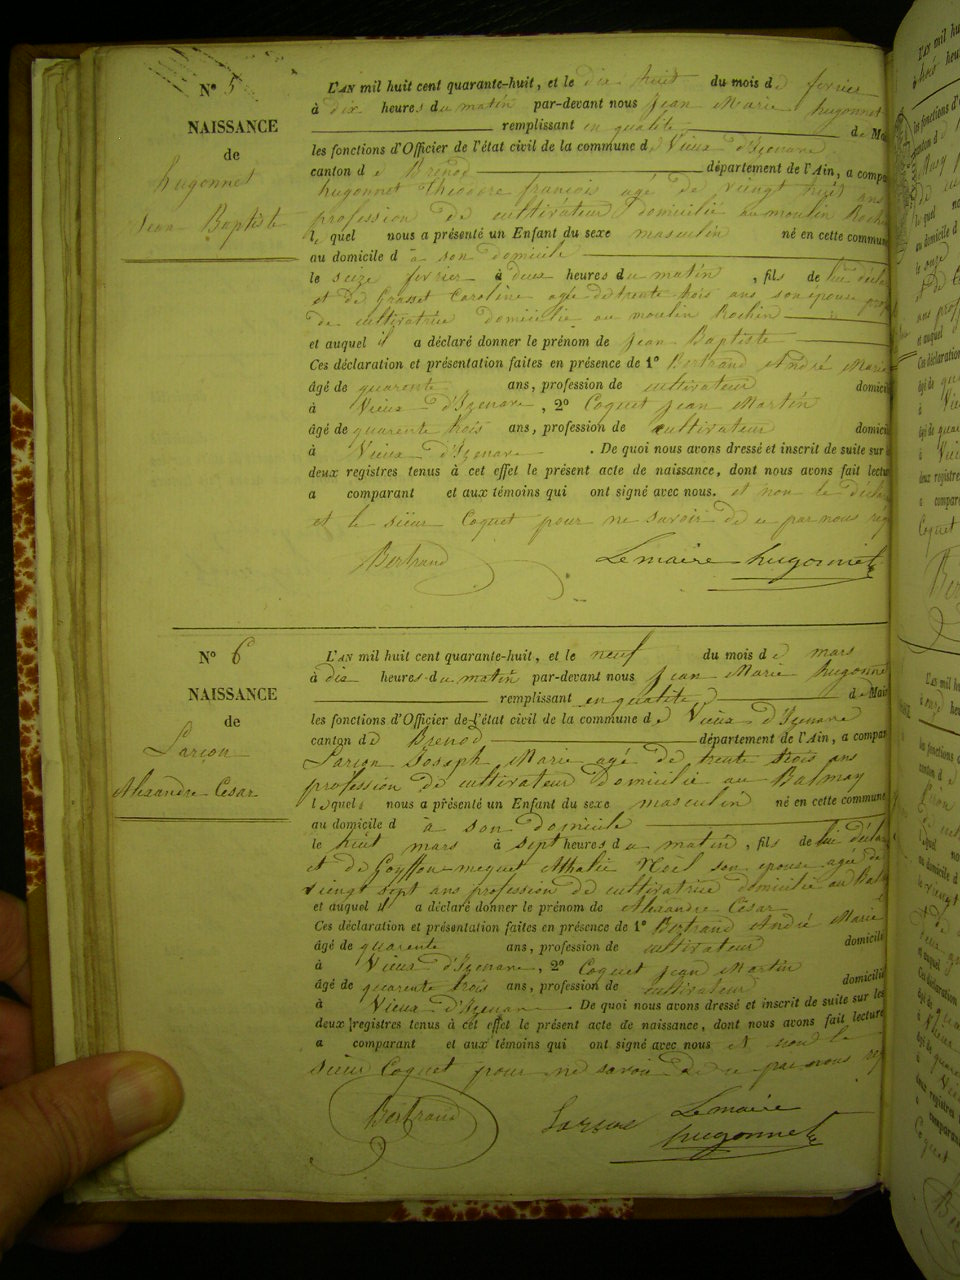 N° 5
NAISSANCE
de
hugonnet
Jean Baptiste
L'AN mil huit cent quarante-huit, et le dix huit du mois de fevrier
à dix heures du matin par-devant nous Jean Marie hugonnet
remplissant en qualité de Mai
les fonctions d'Officier de l'état civil de la commune de Vieux d'Izenave
canton de Brenod département de l'Ain, a compa
hugonnet Théodore françois agé de vieingt huit ans
profession de cultivateur domicilié au moulin Rochin
lequel nous a présenté un Enfant du sexe masculin né en cette commune
au domicile d à son domicile
le seize fevrier à deux heures du matin, fils de lui décla
et de Grasset Caroline agée de trente trois ans son épouse prof
de cultivatrice domiciliée au moulin Rochin
et auquel il a déclaré donner le prénom de Jean Baptiste
Ces déclaration et présentation faites en présence de 1° Bertrand André Marie
âgé de quarente ans, profession de cultivateur domicil
à Vieux d'Izenave, 2° Coquet Jean Martin
âgé de quarente trois ans, profession de cultivateur domici
à Vieux d'Izenave. De quoi nous avons dressé et inscrit de suite sur l
deux registres tenus à cet effet le présent acte de naissance, dont nous avons fait lectu
a comparant et aux témoins qui ont signé avec nous. et non le déclara
et le sieur Coquet pour ne savoir de ce par nous req
Bertrand Le maire hugonnet
N° 6
NAISSANCE
de
Larçon
Alexandre César
L'AN mil huit cent quarante-huit, et le neuf du mois de mars
à dix heures du matin par-devant nous Jean Marie hugonne
remplissant en qualité de Mair
les fonctions d'Officier de l'état civil de la commune de Vieux d'Izenave
canton de Brenod département de l'Ain, a compar
Larçon Joseph Marie agé de trente trois ans
profession de cultivateur domicilié au Balmay
lequel nous a présenté un Enfant du sexe masculin né en cette commune
au domicile d à son domicile
le huit mars à sept heures du matin, fils de lui décla
et de Goyffon mequet Athalie Noël son epouse agée de
vieingt sept ans profession de cultivatrice domicilié au Bal
et auquel il a déclaré donner le prénom de Alexandre César
Ces déclaration et présentation faites en présence de 1° Bertrand André Marie
âgé de quarente ans, profession de cultivateur domicilié
à Vieux d'Izenave, 2° Coquet Jean Martin
âgé de quarente trois ans, profession de cultivateur domicilié
à Vieux d'Izenave. De quoi nous avons dressé et inscrit de suite sur les
deux registres tenus à cet effet le présent acte de naissance, dont nous avons fait lecture
a comparant et aux témoins qui ont signé avec nous et non le
sieur Coquet pour ne savoir de ce par nous req
Bertrand Larson Le maire
hugonnet